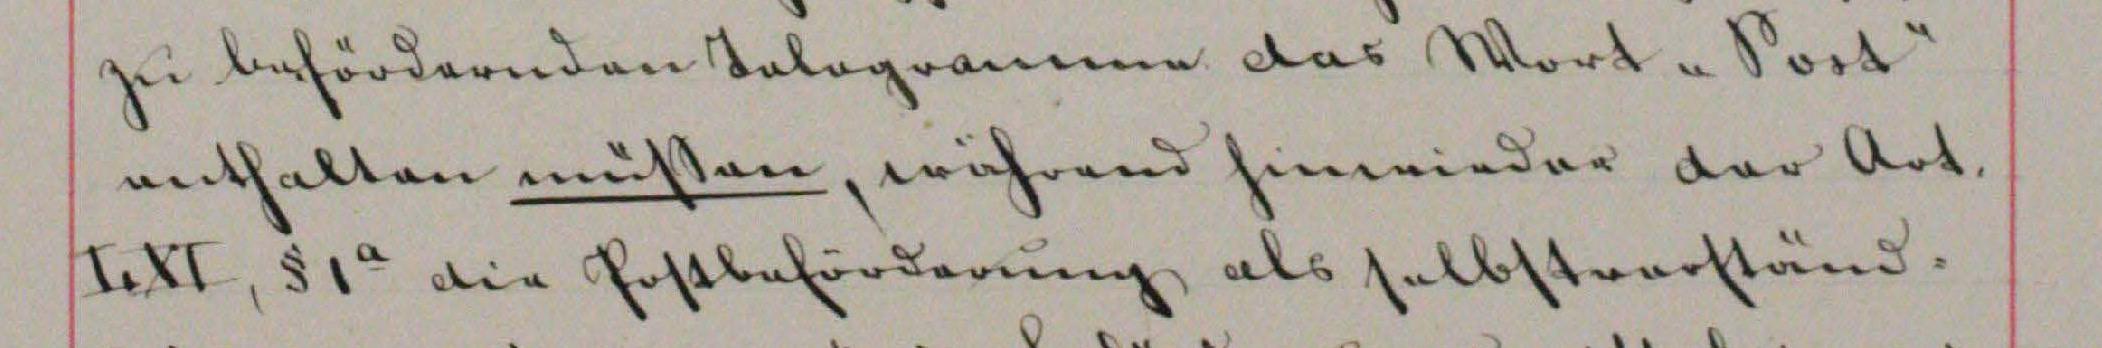 zu befördernden Telegramme das Wort „Post“
enthalten müssen, während hinwieder der Art.
LXI, § 1a die Postbeförderung als selbstverständ-